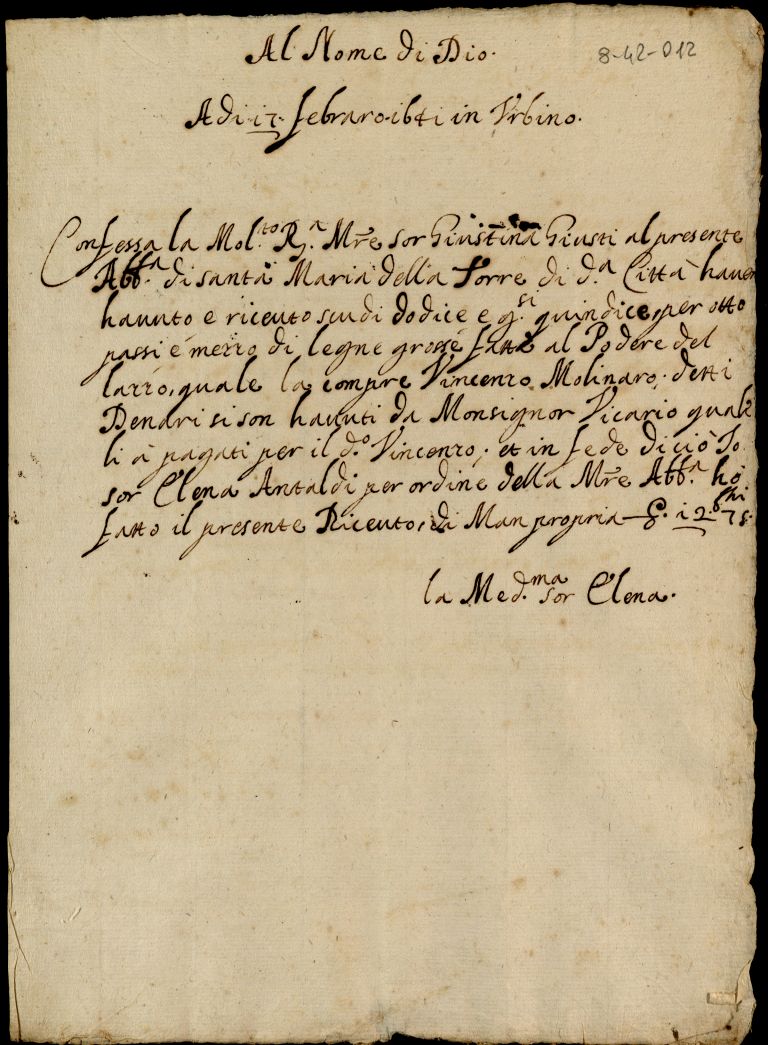 Al Nome di Dio.
8-42-012
Adi 17. febraro 1641 in Vrbino.
Confessa la Mol.to R.a Mr̃e sor Giustina Giusti al presente
Abb.a di santa Maria della Torre di d.a Città haver
hauuto e riceuto scudi dodice e g.si quindice, per otto
passi e mezzo di legne grosse fatte al Podere del
lazzo, quale la compre Vincenzo Molinaro; detti
Denari si son hauuti da Monsignor Vicario quale
li à pagati per il d.o Vincenzo; et in fede di ciò Io
sor Elena Antaldi per ordine della Mr̃e Abb.a hò
fatto il presente Riceuto, di Man propria 12 75.
la Med.ma sor Elena.